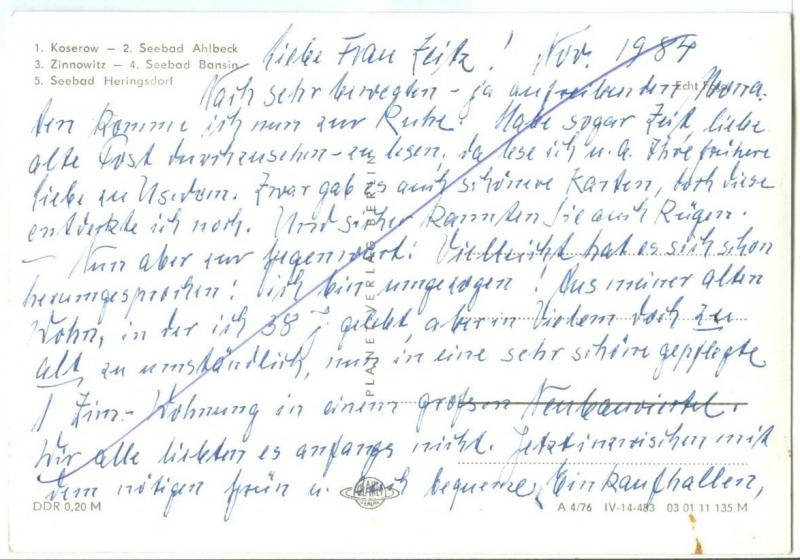 1. Koserow – 2. Seebad Ahlbeck
3. Zinnowitz – 4. Seebad Bansin
5. Seebad Heringsdorf
Liebe Frau Zeitz! Nov. 1984
Nach sehr bewegten – ja aufreibenden Mona-
Echt Foto
ten komme ich nun zur Ruhe. Habe sogar Zeit, liebe
alte Post durchzusehen – zu lesen, da lese ich u. a. Ihre frühere
Liebe zu Usedom. Zwar gab es auch schönere Karten, doch diese
entdeckte ich noch. Und sicher kannten Sie auch Rügen.
– Nun aber zur Gegenwart: Vielleicht hat es sich schon
herumgesprochen: ich bin umgezogen! Aus meiner alten
Wohn, in der ich 38 J. gelebt, aber in Vielem doch zu
alt, zu umständlich, nun in eine sehr schöne gepflegte
1 Zim.-Wohnung in einem großen Neubauviertel.
Wir alle liebten es anfangs nicht. Jetzt inzwischen mit
dem nötigen Grün u. auch bequeme Einkaufhallen,
PLANET-VERLAG BERLIN
PLANET
VERLAG
DDR 0,20 M
A 4/76 IV-14-483 03 01 11 135 M